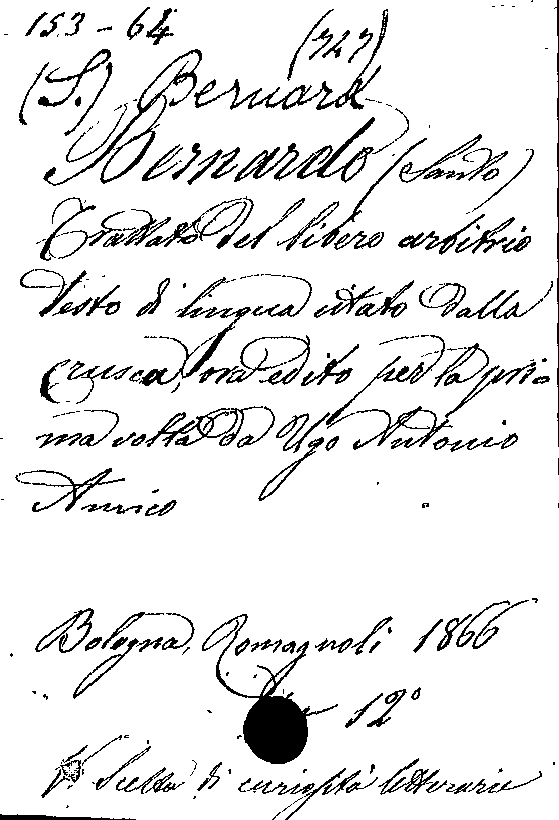 153-64
(747)
(S.) Bernard
Bernardo (Santo)
Trattato del libero arbitrio
Testo di lingua citato dalla
Crusca, ora edito per la pri-
ma volta da Ugo Antonio
Amico
Bologna, Romagnoli 1866
in 12°
V. Scelta di curiosità letterarie